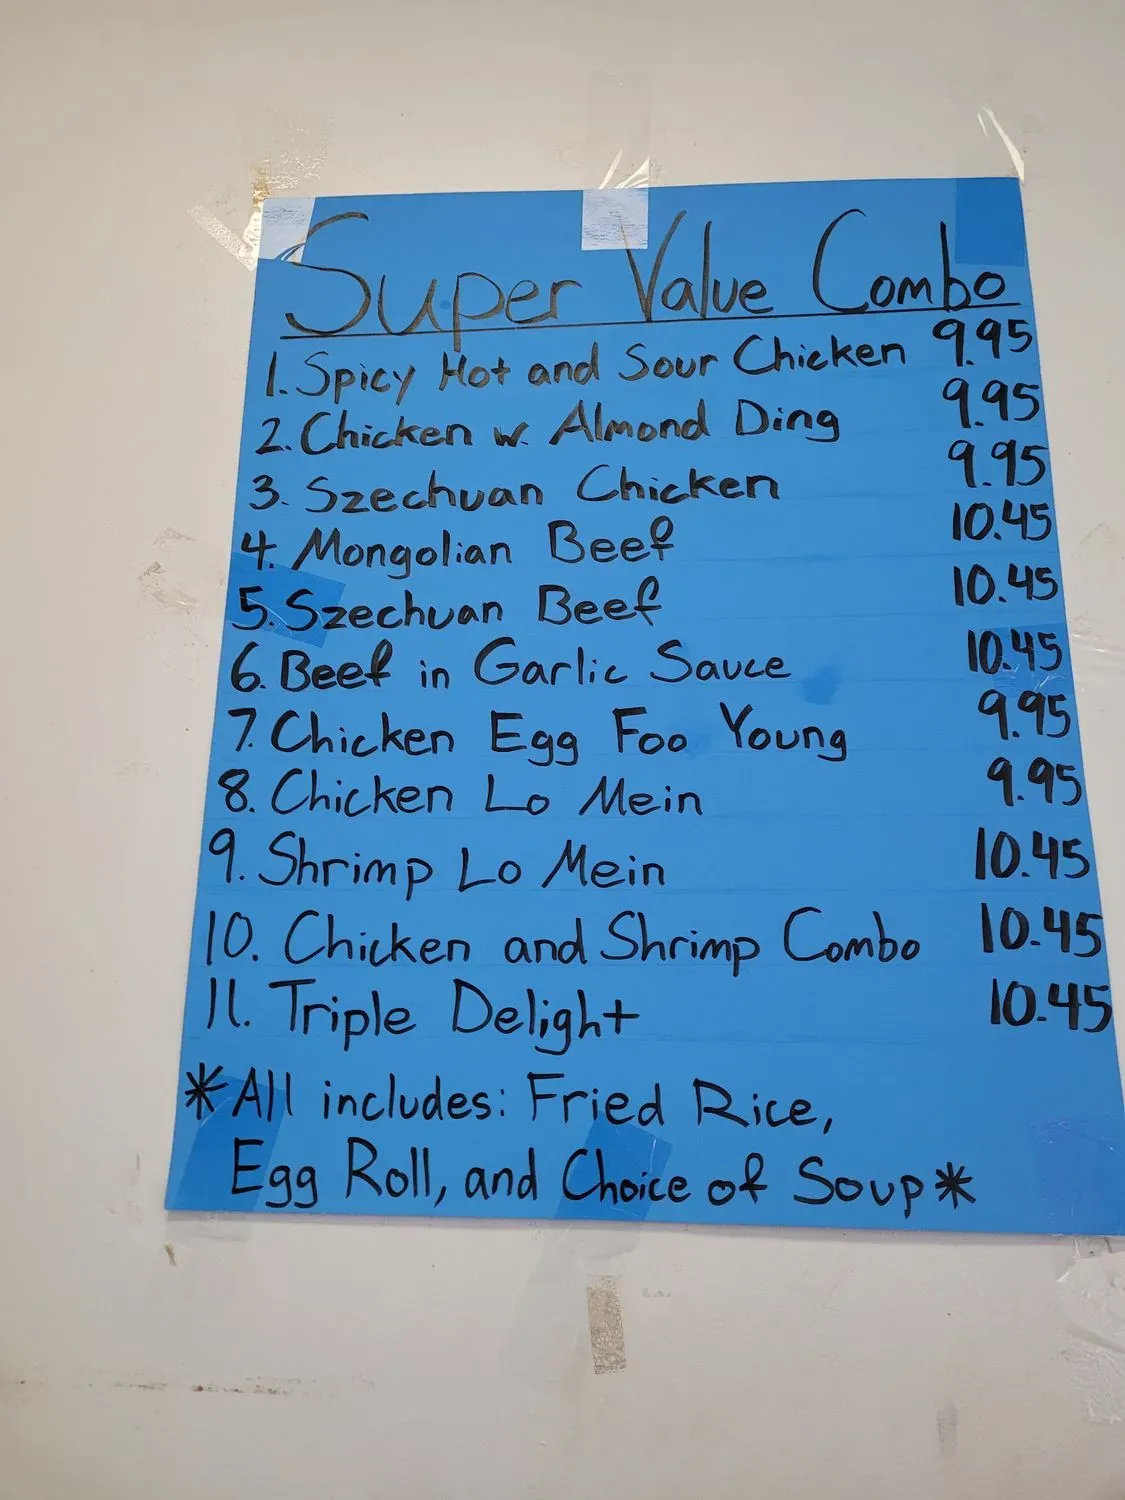 Super Value Combo
1. Spicy Hot and Sour Chicken 9.95
2. Chicken w. Almond Ding 9.95
3. Szechuan Chicken 9.95
4. Mongolian Beef 10.45
5. Szechuan Beef 10.45
6. Beef in Garlic Sauce 10.45
7. Chicken Egg Foo Young 9.95
8. Chicken Lo Mein 9.95
9. Shrimp Lo Mein 10.45
10. Chicken and Shrimp Combo 10.45
11. Triple Delight 10.45
*All includes: Fried Rice,
Egg Roll, and Choice of Soup*